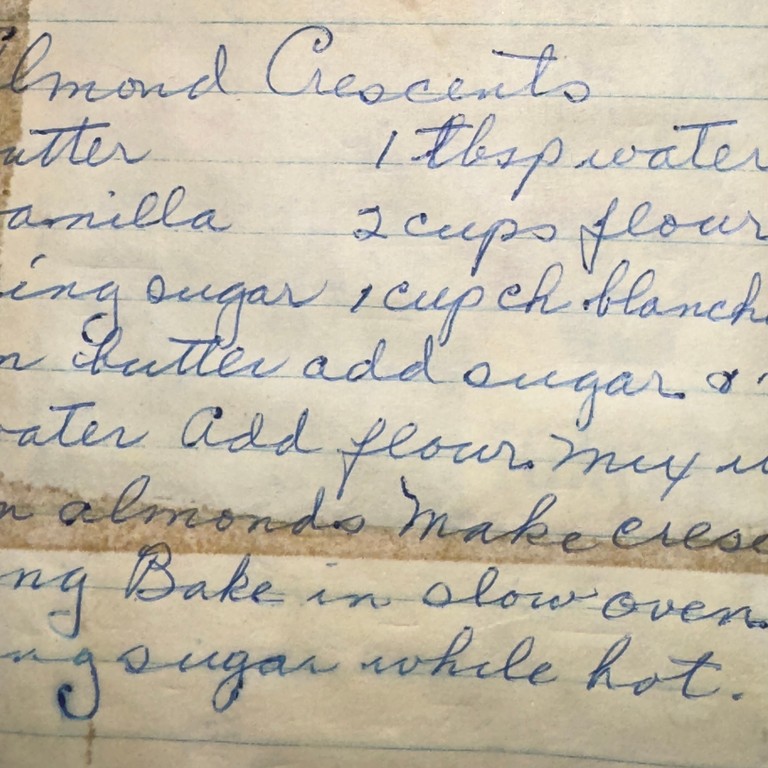 lmond Crescents
utter 1 tbsp water
anilla 2 cups flour
ing sugar 1 cup ch blanch
n butter add sugar &
ater Add flour. Mix
n almonds Make cresc
ng Bake in slow oven.
ng sugar while hot.